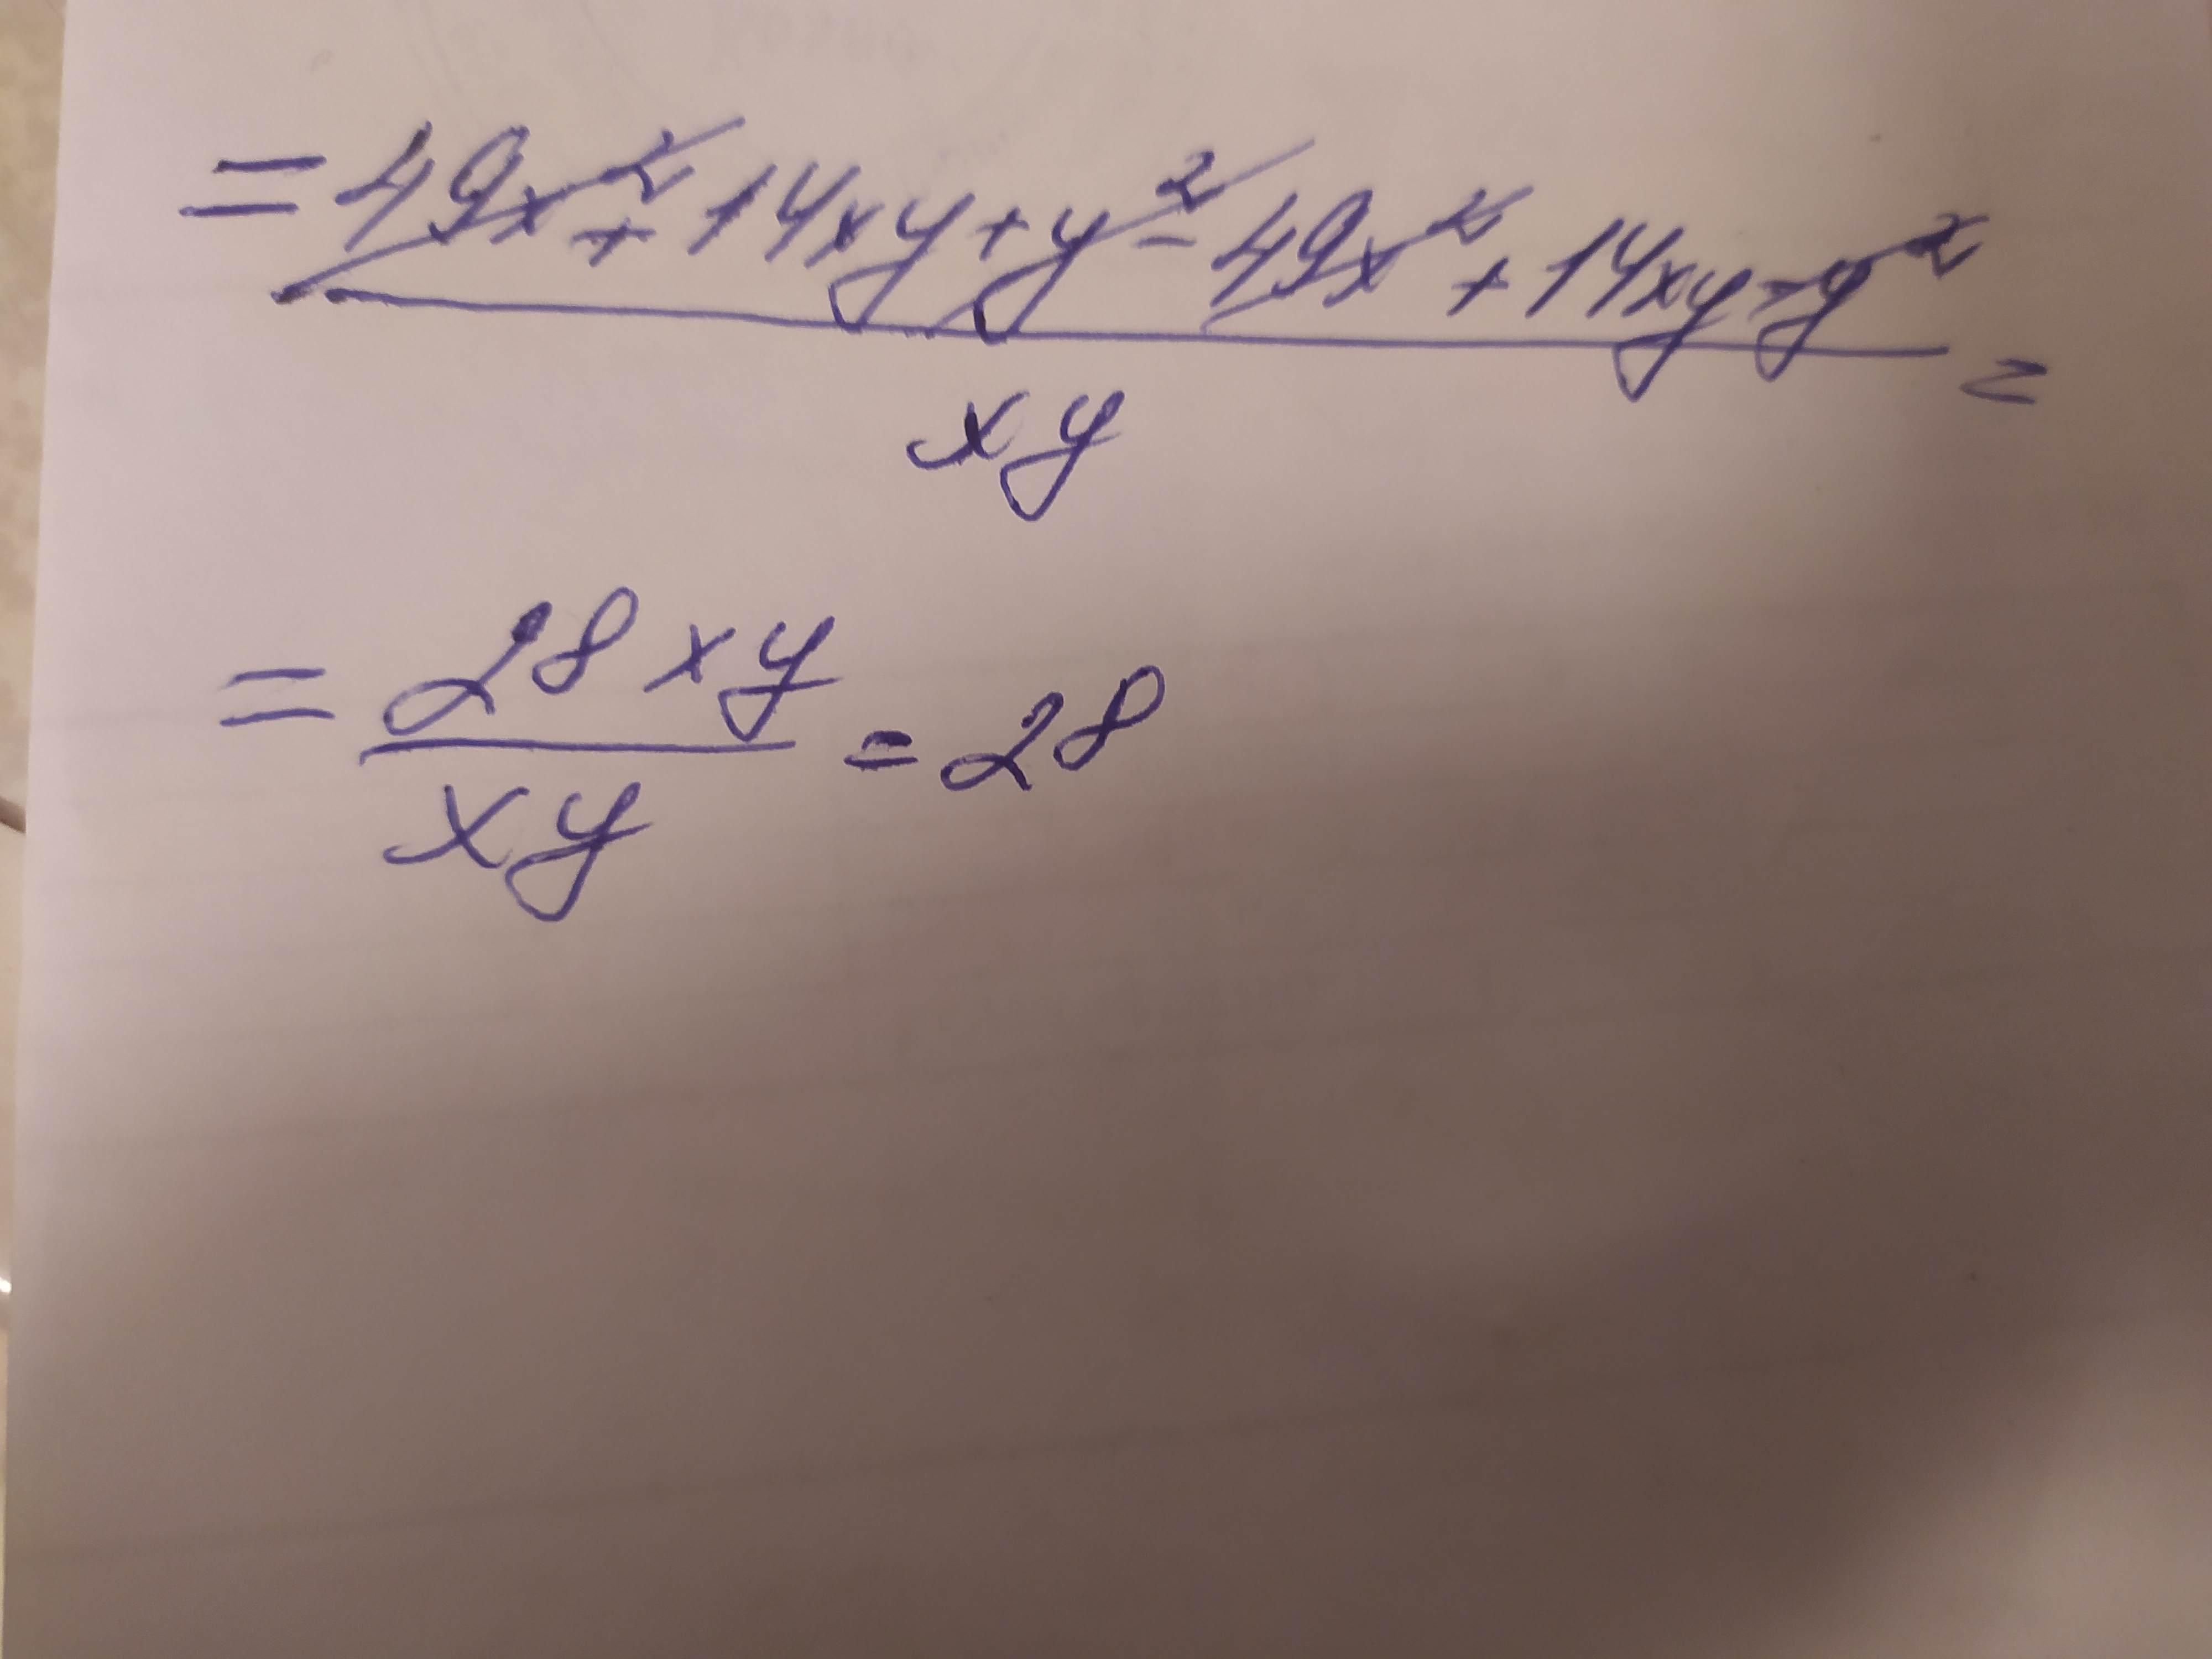 = 49x² + 14xy + y² - 49x² + 14xy - y² / xy =
= 28xy / xy = 28